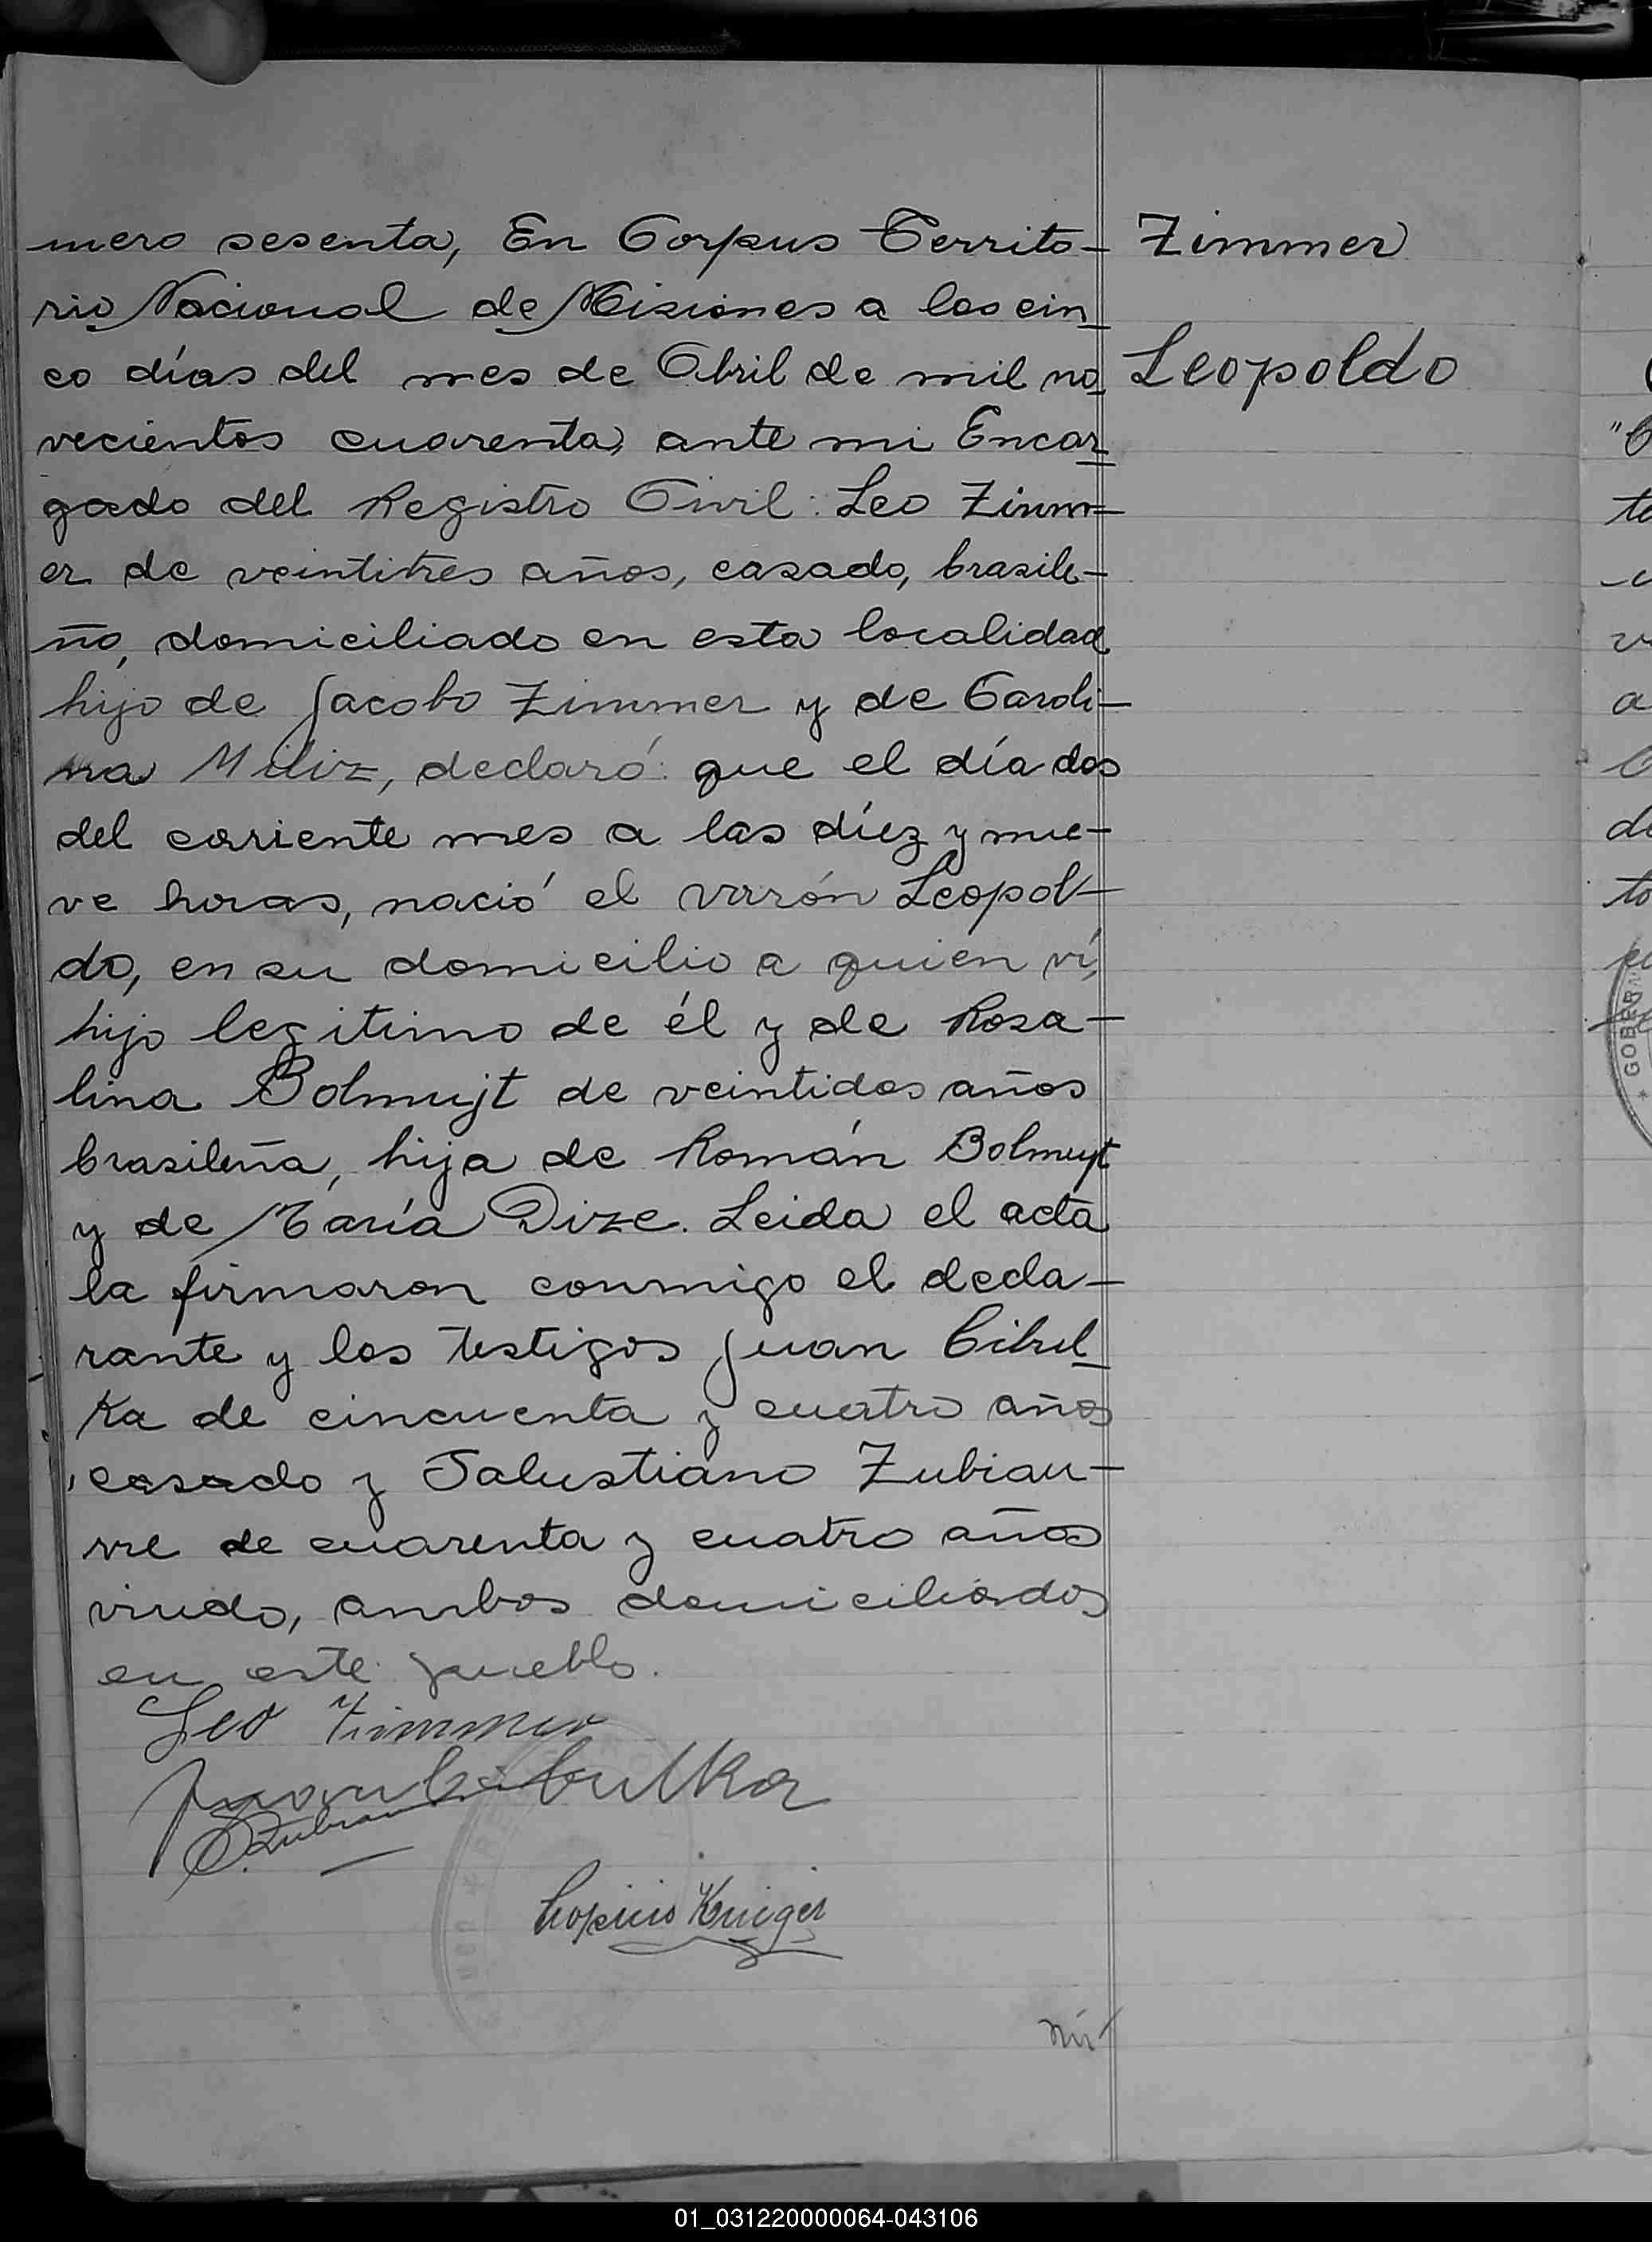 mero sesenta, En Corpus Territo-
rio Nacional de Misiones a los cin
co días del mes de Abril de mil no
vecientos cuarenta, ante mi Encar
gado del Registro Civil: Leo Zimm-
er de veintitres años, casado, brasile-
ño, domiciliado en esta localidad
hijo de Jacobo Zimmer y de Caroli-
na Miliz, declaró: que el día dos
del coriente mes a las díez y nue-
ve horas, nació el varón Leopol-
do, en su domicilio a quien ví,
hijo legitimo de él y de Rosa-
lina Bolmujt de veintidos años
brasileña, hija de Román Bolmujt
y de María Dize. Leida el acta
la firmaron conmigo el decla-
rante y los testigos Juan Cibul
ka de cincuenta y cuatro años
casado y Salustiano Zubiau-
rre de cuarenta y cuatro años
viudo, ambos domiciliados
en este pueblo.
Leo Zimmer
Juan Cibulka
Krieger
nú
Zimmer
Leopoldo
GOBER
01_031220000064-043106